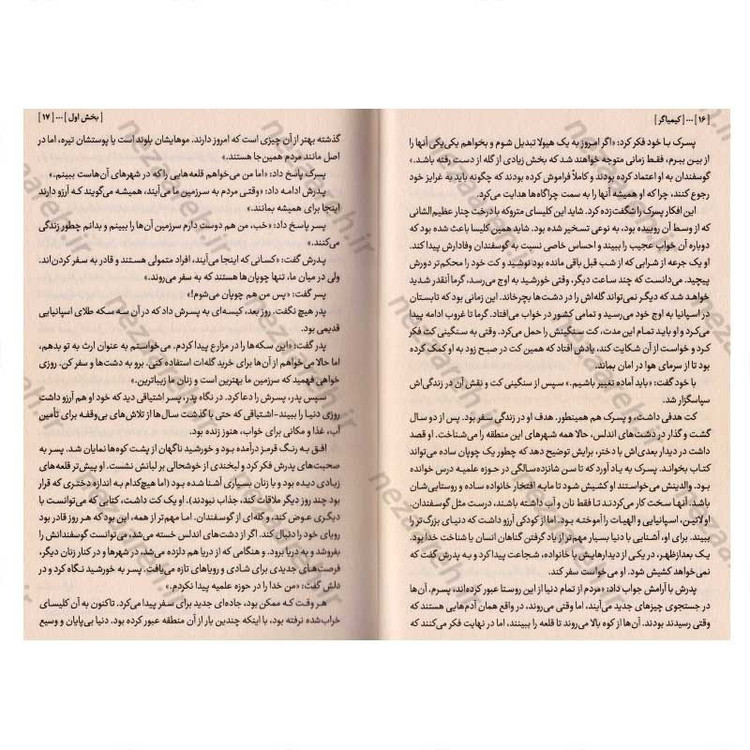 [ ۱۶ ] ... [ کیمیاگر ]
پسرک با خود فکر کرد: «اگر امروز به یک هیولا تبدیل شوم و بخواهم یکی‌یکی آنها را
از بین ببرم، فقط زمانی متوجه خواهند شد که بخش زیادی از گله از دست رفته باشد.»
گوسفندان به او اعتماد کرده بودند و کاملاً فراموش کرده بودند که چگونه باید به غرایز خود
رجوع کنند، چرا که او همیشه آنها را به سمت چراگاه‌ها هدایت می‌کرد.
این افکار پسرک را شگفت‌زده کرد. شاید این کلیسای متروکه با درخت چنار عظیم‌الشانی
که از وسط آن روییده بود، به نوعی تسخیر شده بود. شاید همین کلیسا باعث شده بود که
دوباره آن خواب عجیب را ببیند و احساس خاصی نسبت به گوسفندان وفادارش پیدا کند.
او یک جرعه از شرابی که از شب قبل باقی مانده بود نوشید و کت خود را محکم‌تر دورش
پیچید. می‌دانست که چند ساعت دیگر، وقتی خورشید به اوج می‌رسد، گرما آنقدر شدید
خواهد شد که دیگر نمی‌تواند گله‌اش را در دشت‌ها بچرخاند. این زمانی بود که تابستان
در اسپانیا به اوج خود می‌رسید و تمامی کشور در خواب می‌افتاد. گرما تا غروب ادامه پیدا
می‌کرد و او باید تمام این مدت، کت سنگینش را حمل می‌کرد. وقتی به سنگینی کت فکر
کرد و خواست از آن شکایت کند، یادش افتاد که همین کت در صبح زود به او کمک کرده
بود تا از سرمای هوا در امان بماند.
با خود گفت: «باید آماده تغییر باشیم.» سپس از سنگینی کت و نقش آن در زندگی‌اش
سپاسگزار شد.
کت هدفی داشت، و پسرک هم همینطور. هدف او در زندگی سفر بود. پس از دو سال
گشت و گذار در دشت‌های اندلس، حالا همه شهرهای این منطقه را می‌شناخت. او قصد
داشت در دیدار بعدی‌اش با دختر، برایش توضیح دهد که چطور یک چوپان ساده می‌تواند
کتاب بخواند. پسرک به یاد آورد که تا سن شانزده‌سالگی در حوزه علمیه درس خوانده
بود. والدینش می‌خواستند او کشیش شود تا مایه افتخار خانواده ساده و روستایی‌شان
باشد. آنها سخت کار می‌کردند تا فقط نان و آب داشته باشند، درست مثل گوسفندان.
او لاتین، اسپانیایی و الهیات را آموخته بود. اما از کودکی آرزو داشت که دنیای بزرگ‌تر را
ببیند. برای او، آشنایی با دنیا بسیار مهم‌تر از یاد گرفتن گناهان انسان یا شناخت خدا بود.
یک بعدازظهر، در یکی از دیدارهایش با خانواده، شجاعت پیدا کرد و به پدرش گفت که
نمی‌خواهد کشیش شود. او می‌خواست سفر کند.
پدرش با آرامش جواب داد: «مردم از تمام دنیا از این روستا عبور کرده‌اند، پسرم. آن‌ها
در جستجوی چیزهای جدید می‌آیند، اما وقتی می‌روند، در واقع همان آدم‌هایی هستند که
وقتی رسیدند بودند. آن‌ها از کوه بالا می‌روند تا قلعه را ببینند، اما در نهایت فکر می‌کنند که
[ بخش اول ] ... [ ۱۷ ]
گذشته بهتر از آن چیزی است که امروز دارند. موهایشان بلوند است یا پوستشان تیره، اما در
اصل مانند مردم همین‌جا هستند.»
پسرک پاسخ داد: «اما من می‌خواهم قلعه‌هایی را که در شهرهای آن‌هاست ببینم.»
پدرش ادامه داد: «وقتی مردم به سرزمین ما می‌آیند، همیشه می‌گویند که آرزو دارند
اینجا برای همیشه بمانند.»
پسر پاسخ داد: «خب، من هم دوست دارم سرزمین آن‌ها را ببینم و بدانم چطور زندگی
می‌کنند.»
پدرش گفت: «کسانی که اینجا می‌آیند، افراد متمولی هستند و قادر به سفر کردن‌اند.
ولی در میان ما، تنها چوپان‌ها هستند که به سفر می‌روند.»
پسر گفت: «پس من هم چوپان می‌شوم!»
پدر هیچ نگفت. روز بعد، کیسه‌ای به پسرش داد که در آن سه سکه طلای اسپانیایی
قدیمی بود.
پدر گفت: «این سکه‌ها را در مزارع پیدا کردم. می‌خواستم به عنوان ارث به تو بدهم،
اما حالا می‌خواهم از آن‌ها برای خرید گله‌ات استفاده کنی. برو به دشت‌ها و سفر کن. روزی
خواهی فهمید که سرزمین ما بهترین است و زنان ما زیباترین.»
سپس پدر، پسرش را دعا کرد. در نگاه پدر، پسر اشتیاقی دید که خود او هم آرزو داشت
روزی دنیا را ببیند-اشتیاقی که حتی با گذشت سال‌ها از تلاش‌های بی‌وقفه برای تأمین
آب، غذا و مکانی برای خواب، هنوز زنده بود.
افق به رنگ قرمز درآمده بود و خورشید ناگهان از پشت کوه‌ها نمایان شد. پسر به
صحبت‌های پدرش فکر کرد و لبخندی از خوشحالی بر لبانش نشست. او پیش‌تر قلعه‌های
زیادی دیده بود و با زنان بسیاری آشنا شده بود (اما هیچ‌کدام به اندازه دختری که قرار
بود چند روز دیگر ملاقات کند، جذاب نبودند). او یک کت داشت، کتابی که می‌توانست با
دیگری عوض کند، و گله‌ای از گوسفندان. اما مهم‌تر از همه، این بود که هر روز قادر بود
رویای خود را دنبال کند. اگر از دشت‌های اندلس خسته می‌شد، می‌توانست گوسفندانش را
بفروشد و به دریا برود. و هنگامی که از دریا هم دلزده می‌شد، در شهرها و در کنار زنان دیگر،
فرصت‌های جدیدی برای شادی و رویاهای تازه می‌یافت. پسر به خورشید نگاه کرد و در
دلش گفت: «من خدا را در حوزه علمیه پیدا نکردم.»
هر وقت که ممکن بود، جاده‌ای جدید برای سفر پیدا می‌کرد. تاکنون به آن کلیسای
خراب‌شده نرفته بود، با اینکه چندین بار از آن منطقه عبور کرده بود. دنیا بی‌پایان و وسیع
nezaareh.ir